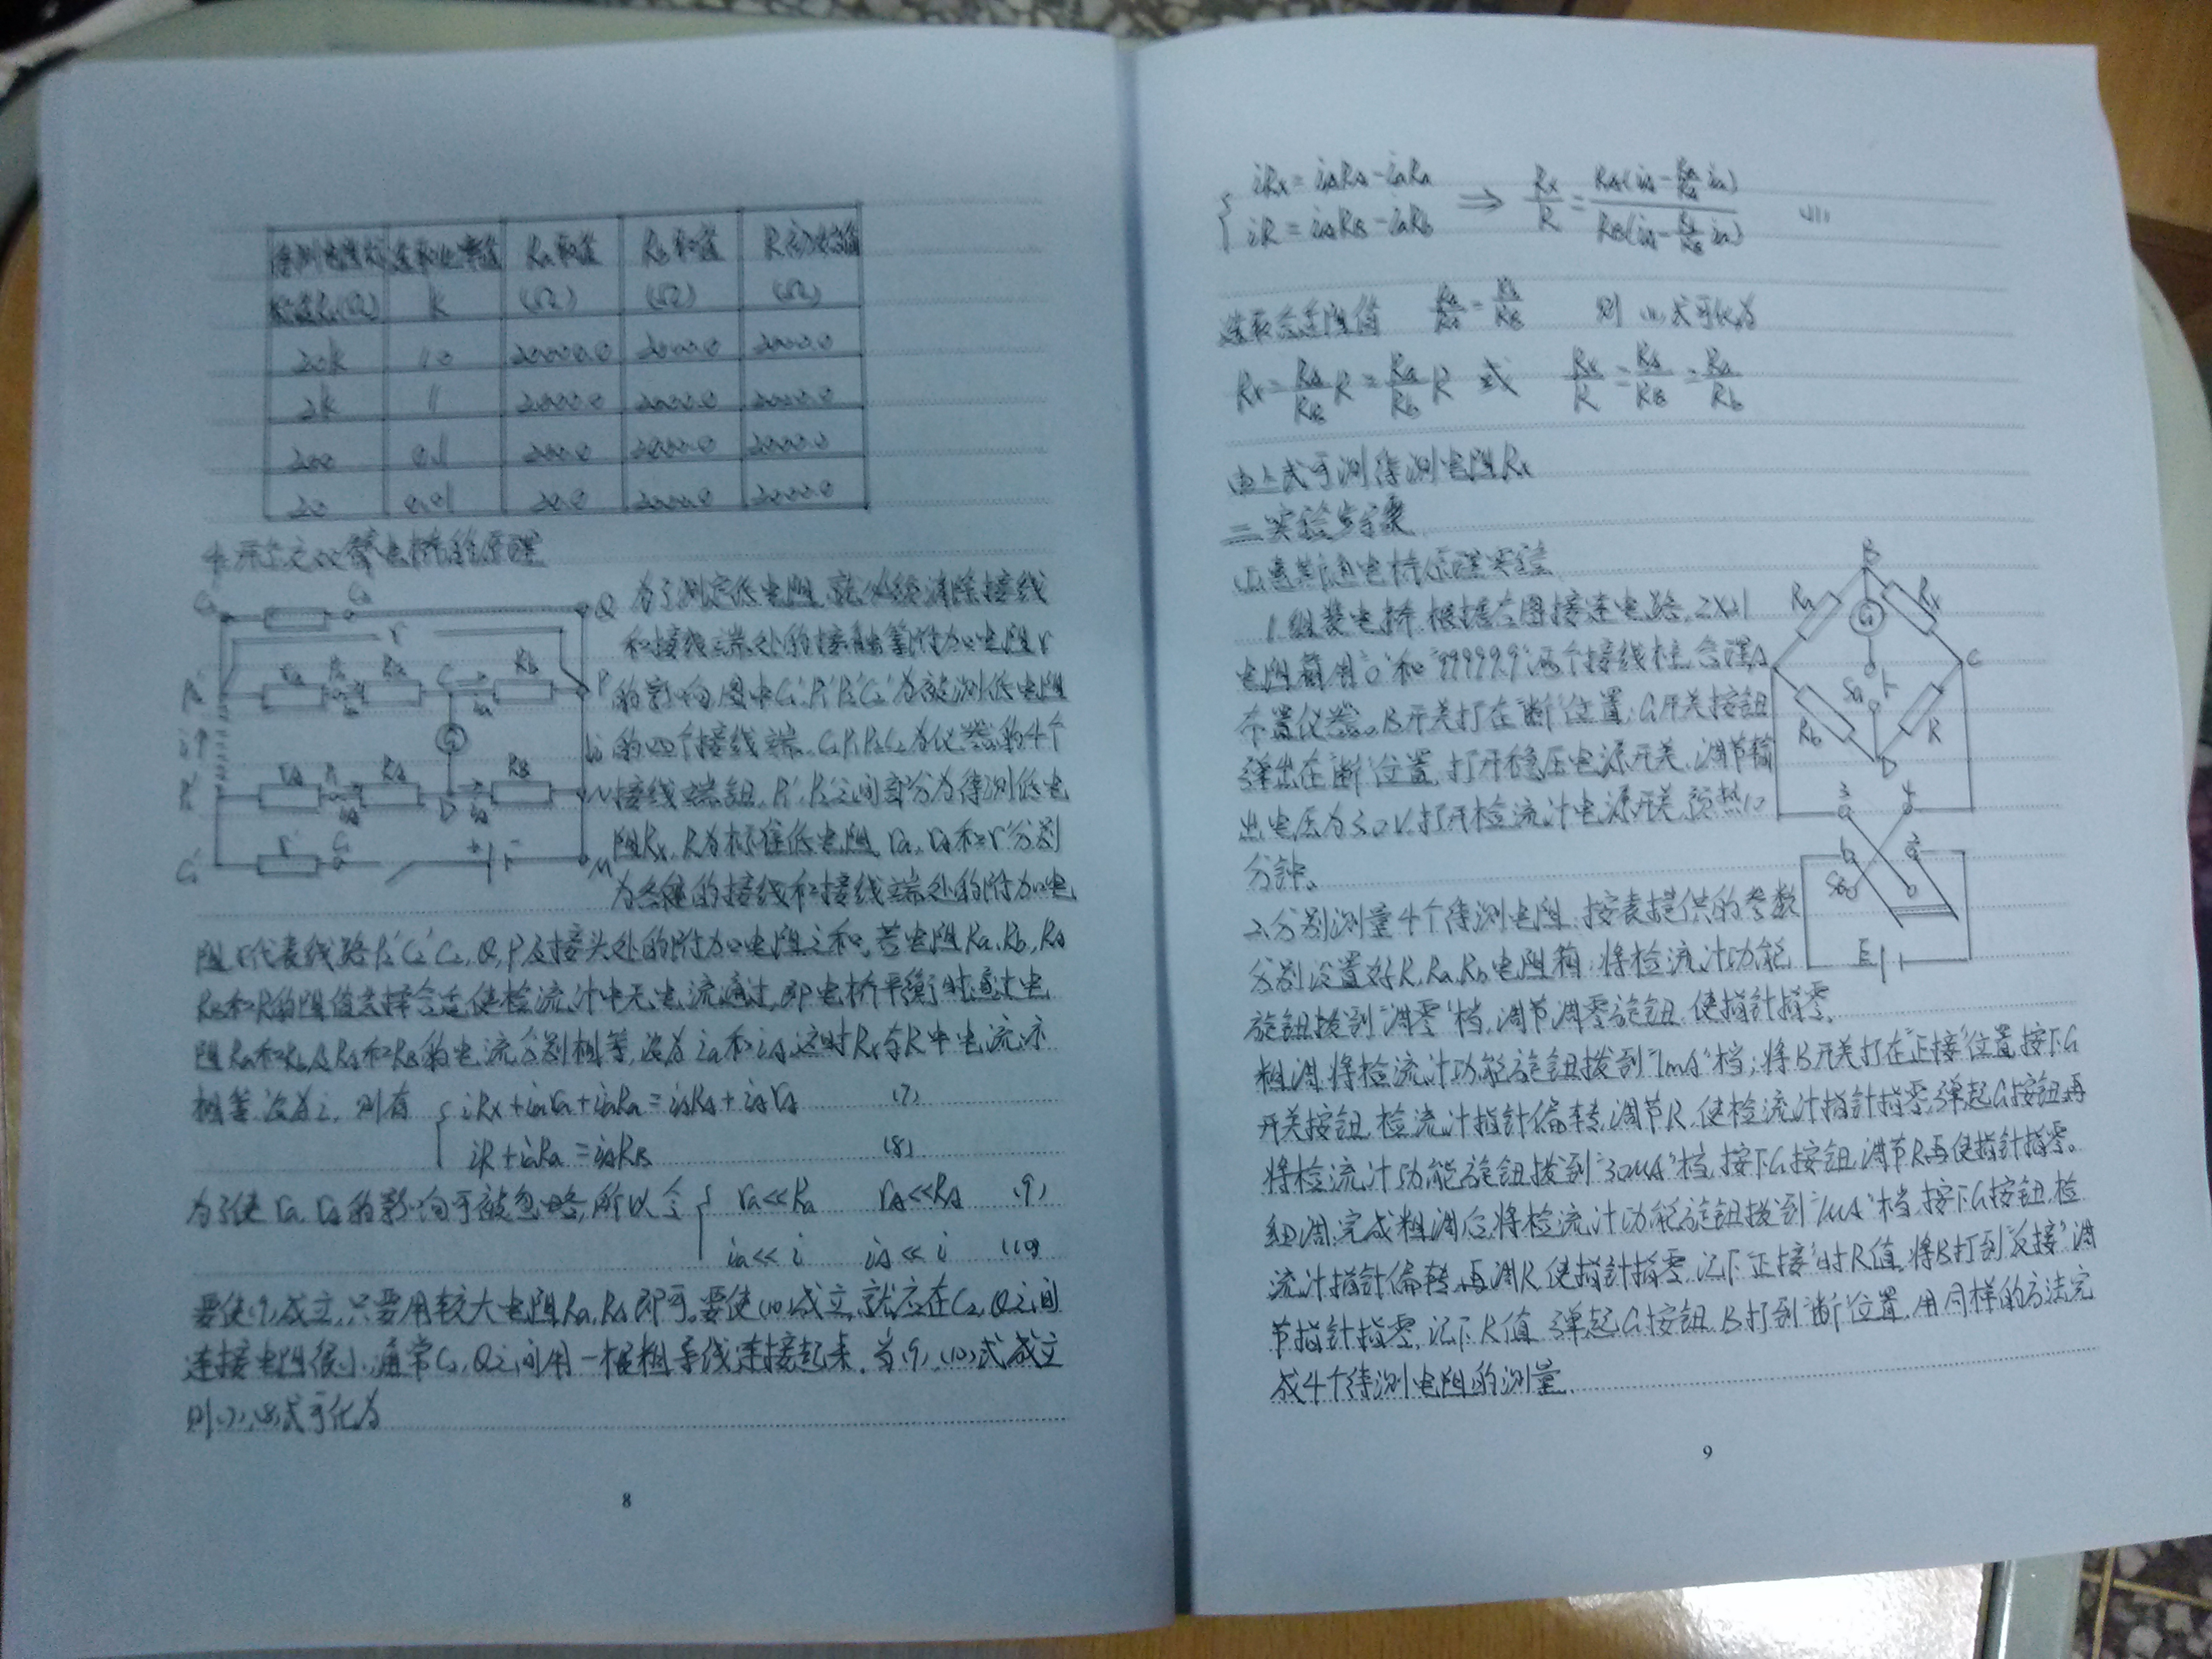 待测电阻 选取比率值 Ra取值 Rb取值 R初始值
Rx(Ω) k (Ω) (Ω) (Ω)
20k 10 20000.0 2000.0 2000.0
2k 1 2000.0 2000.0 2000.0
200 0.1 200.0 2000.0 2000.0
20 0.01 20.0 2000.0 2000.0
4.开尔文双臂电桥的原理
为了测定低电阻,就必须消除接线
和接线端处的接触等附加电阻r
的影响,图中C₁'P₁'P₂'C₂'为被测低电阻
的四个接线端,C₁P₁P₂C₂为仪器的4个
接线端钮,P₁'P₂'之间部分为待测低电
阻Rx,R为标准低电阻,ra,rA和r'分别
为各处的接线和接线端处的附加电
阻,r代表线路P₂'C₂'C₂,Q,P及接头处的附加电阻之和。若电阻Ra,Rb,RA
RB和R的阻值选择合适使检流计中无电流通过,即电桥平衡时,通过电
阻Ra和Rb及RA和RB的电流分别相等,设为ia和iA,这时Rx与R中电流亦
相等,设为i,则有 iRx+iara+iaRa=iARA+iArA (7)
iR+iaRa=iARB (8)
为了使ra,rA的影响可被忽略,所以令 ra<<Ra rA<<RA (9)
ia<<i iA<<i (10)
要使(9)成立,只要用较大电阻Ra,RA即可。要使(10)成立,就应在C₂,Q之间
连接电阻很小,通常C₂,Q之间用一根粗导线连接起来。当(9),(10)式成立
则(7),(8)式可化为
8
iRx=iARA-iaRa
iR=iARB-iaRb ⇒ Rx/R=RA(iA-Ra/RA ia)/RB(iA-Rb/RB ia) (11)
选取合适阻值 Ra/RA=Rb/RB 则(11)式可化为
Rx=RA/RB R=Ra/Rb R 或 Rx/R=RA/RB=Ra/Rb
由上式可测待测电阻Rx
三.实验步骤
(1).惠斯通电桥原理实验
1.组装电桥.根据右图接连电路,ZX21
电阻箱用"0"和"99999.9"两个接线柱,合理
布置仪器。B开关打在"断"位置;G开关按钮
弹出在"断"位置,打开稳压电源开关,调节输
出电压为3.0V,打开检流计电源开关,预热10
分钟。
2.分别测量4个待测电阻:按表提供的参数
分别设置好R,Ra,Rb电阻箱;将检流计功能
旋钮拨到"调零"档,调节调零旋钮,使指针指零。
粗调:将检流计功能旋钮拨到"1mA"档;将B开关打在"正接"位置,按下G
开关按钮,检流计指针偏转,调节R,使检流计指针指零,弹起G按钮,再
将检流计功能旋钮拨到"30μA"档,按下G按钮,调节R再使指针指零。
细调:完成粗调后,将检流计功能旋钮拨到"1μA"档,按下G按钮,检
流计指针偏转,再调R,使指针指零,记下"正接"时R值,将B打到"反接"调
节指针指零,记下R值,弹起G按钮,B打到"断"位置,用同样的方法完
成4个待测电阻的测量.
B
Ra
G
Rx
A
C
SG
Rb
R
D
3
4
SB
E
9